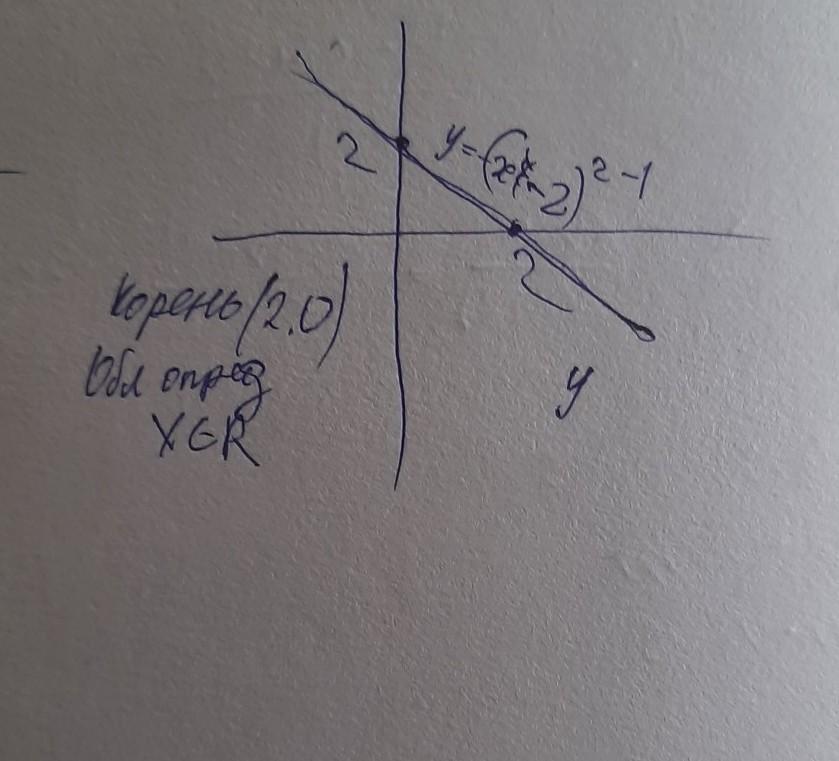 2
y=-(x-2)^2-1
2
Корень (2,0)
Обл опред
y
X∈R